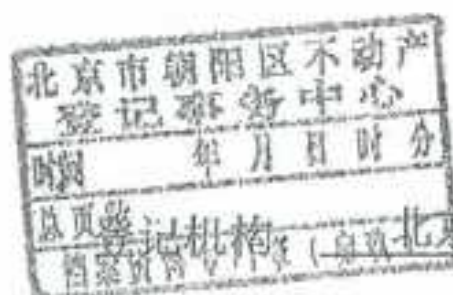 北京市朝阳区不动产
登记事务中心
时间 年 月 日 时 分
总页张
登记机构 北京
档案